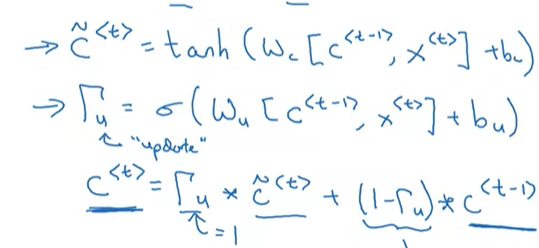 → c̃^<t> = tanh(W_c [c^<t-1>, x^<t>] + b_c)
→ Γ_u = σ(W_u [c^<t-1>, x^<t>] + b_u)
"update"
c^<t> = Γ_u * c̃^<t> + (1-Γ_u) * c^<t-1>
=1